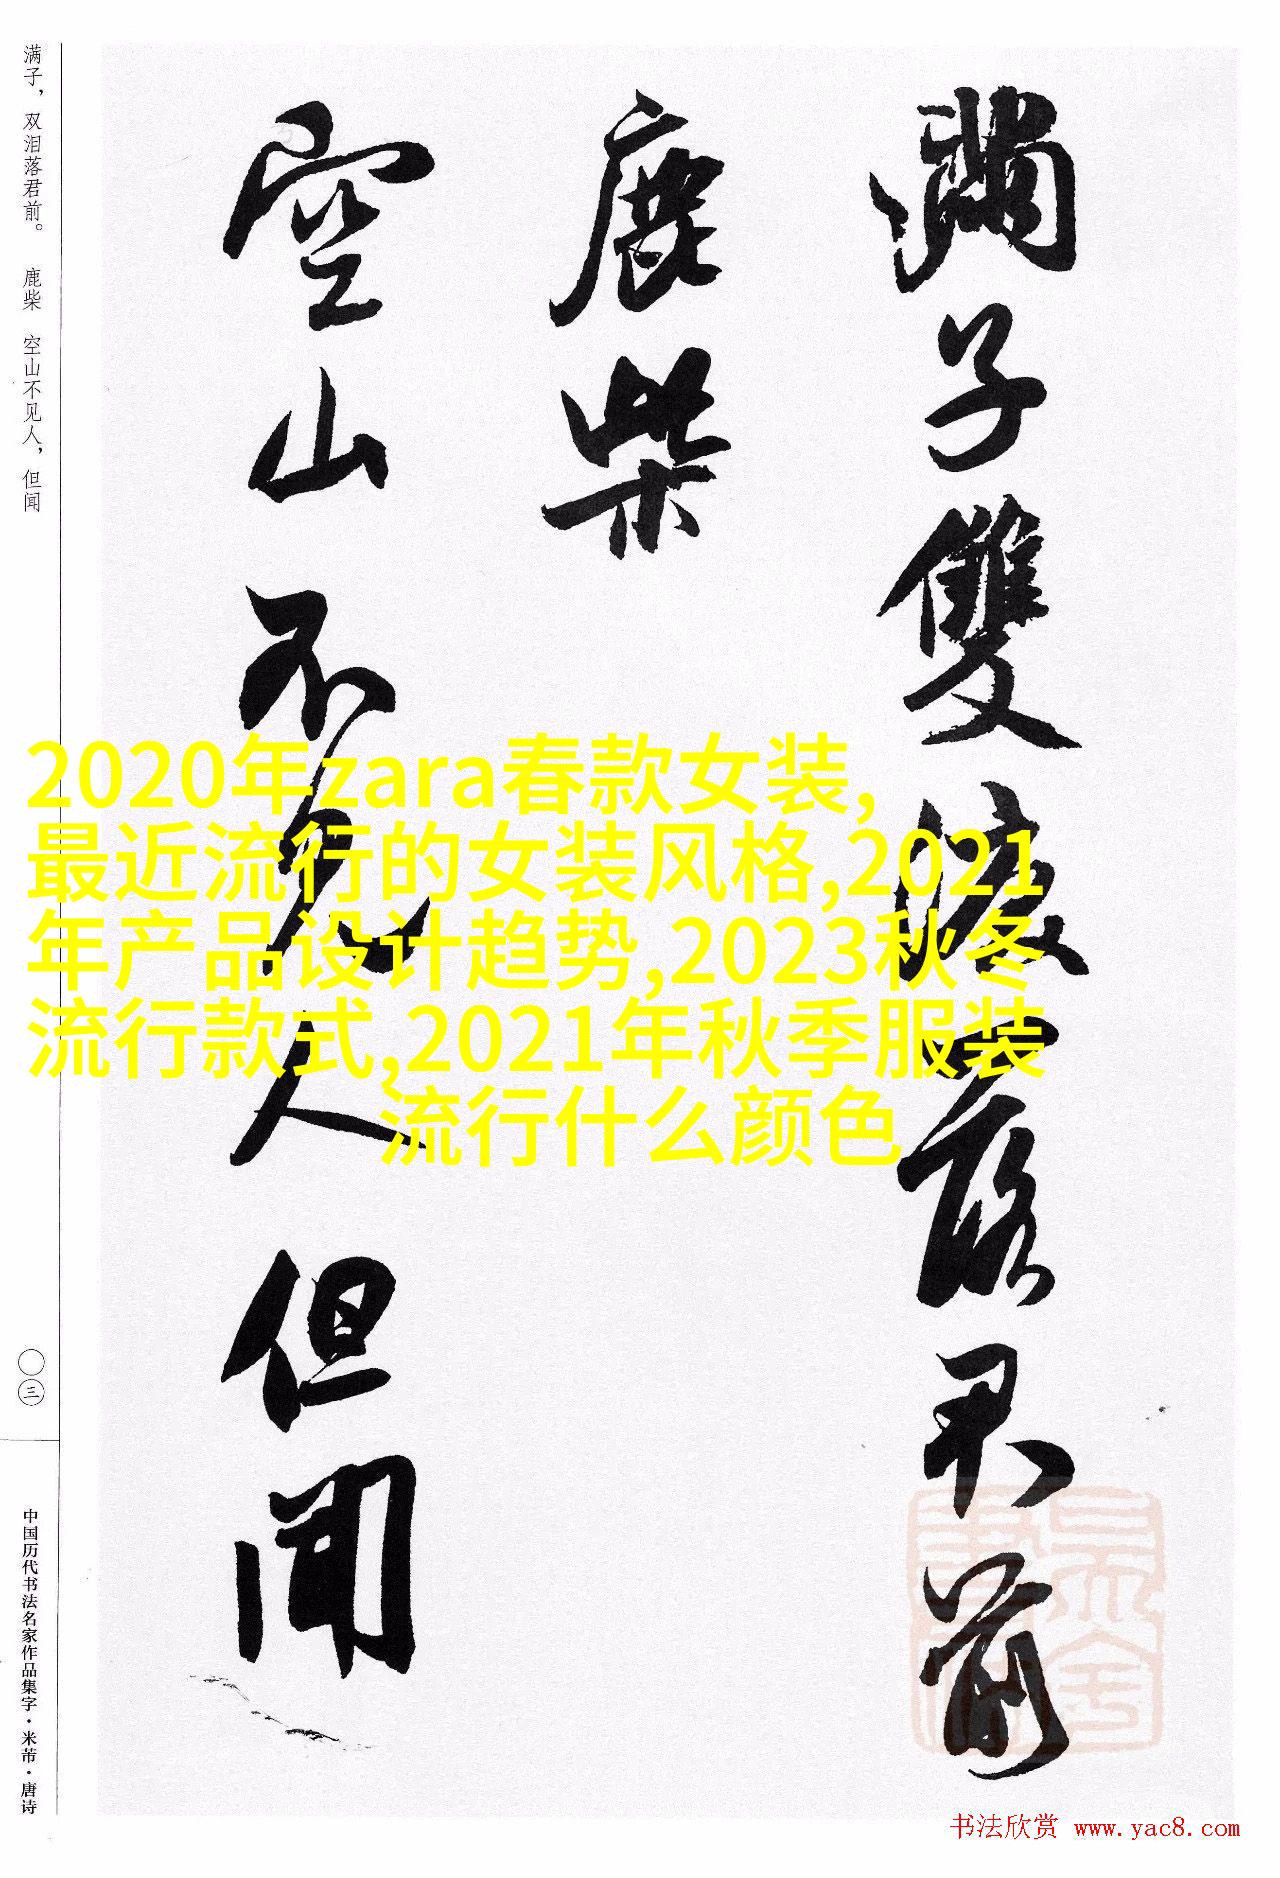 满子，双泪落君前。 鹿柴 空山不见人，但闻
滿子雙淚落君前
鹿柴
空山不見人但聞
2020年zara春款女装,
最近流行的女装风格,2021
年产品设计趋势,2023秋冬
流行款式,2021年秋季服装
流行什么颜色
〇三
中国历代书法名家作品集字·米芾·唐诗
书法欣赏 www.yac8.com